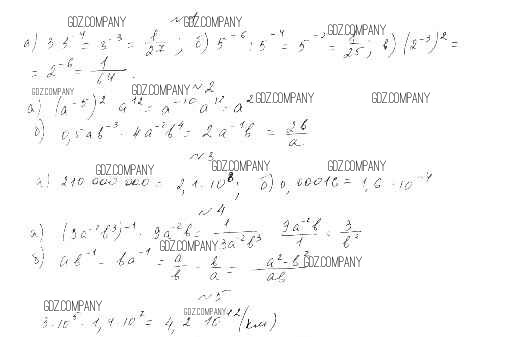 GDZ.COMPANY № 1 GDZ.COMPANY
а) 3·3⁻⁴ = 3⁻³ = 1/27 ; б) 5⁻⁶ : 5⁻⁴ = 5⁻² = 1/25 ; в) (2⁻³)² =
= 2⁻⁶ = 1/64 .
GDZ.COMPANY GDZ.COMPANY № 2 GDZ.COMPANY GDZ.COMPANY
а) (a⁻⁵)² a¹² = a⁻¹⁰ a¹² = a²
б) 0,5ab⁻³ · 4a⁻²b⁴ = 2a⁻¹b = 2b/a
№ 3
GDZ.COMPANY GDZ.COMPANY GDZ.COMPANY
а) 210 000 000 = 2,1·10⁸ ; б) 0,00016 = 1,6·10⁻⁴
№ 4
а) (3a⁻²b³)⁻¹ · 9a⁻²b = 1/3a⁻²b³ · 9a⁻²b/1 = 3/b²
GDZ.COMPANY GDZ.COMPANY
б) ab⁻¹ - ba⁻¹ = a/b - b/a = a²-b²/ab
№ 5
GDZ.COMPANY GDZ.COMPANY
3·10⁵ · 1,4·10⁷ = 4,2 10¹² (км)